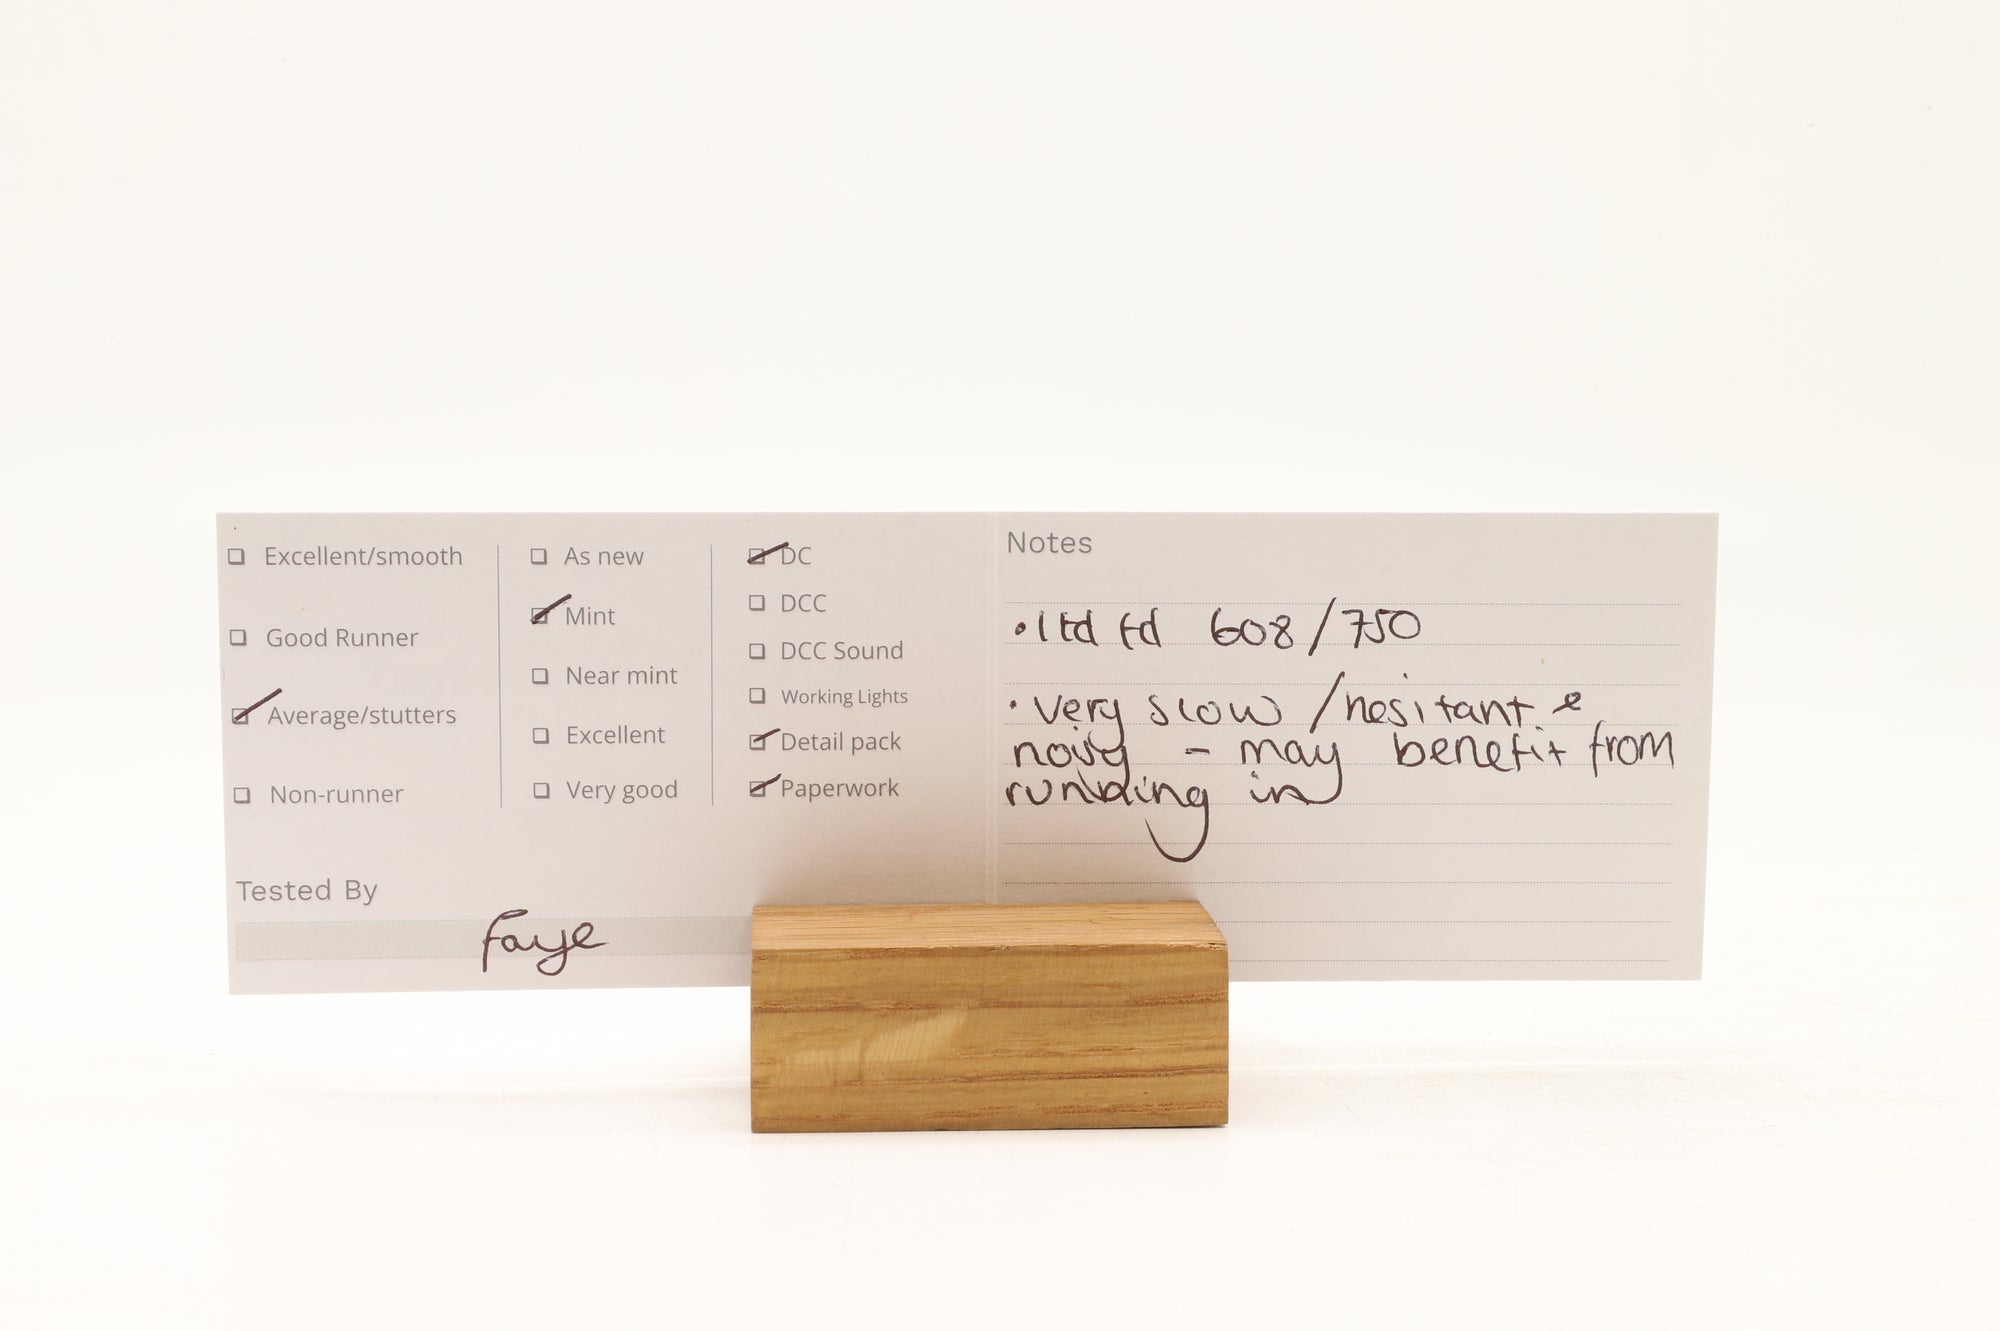 Excellent/smooth
Good Runner
Average/stutters
Non-runner
As new
Mint
Near mint
Excellent
Very good
DC
DCC
DCC Sound
Working Lights
Detail pack
Paperwork
Tested By
Faye
Notes
• ltd td 608/750
• very slow /hesitant &
noisy - may benefit from
running in